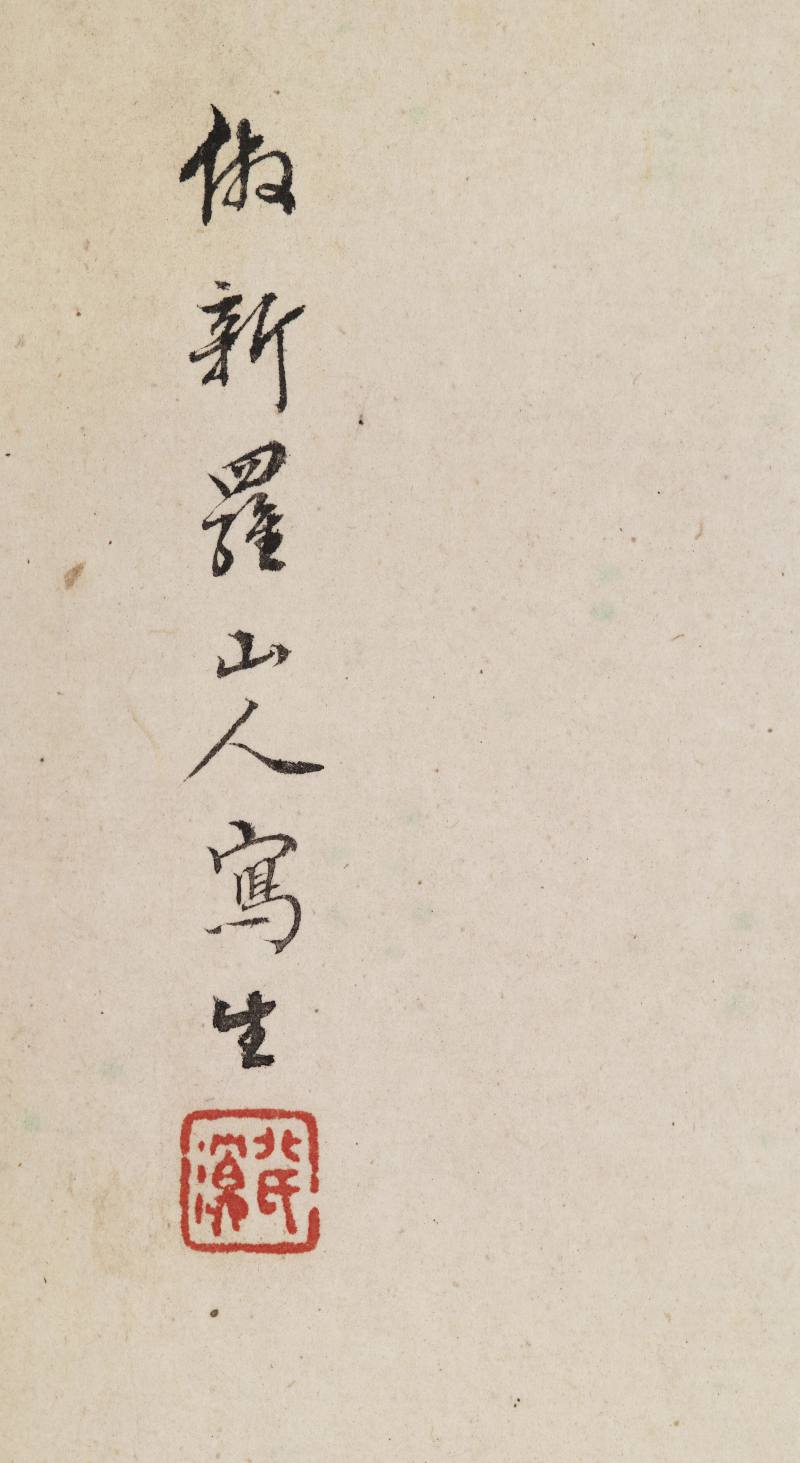 倣新羅山人寫生